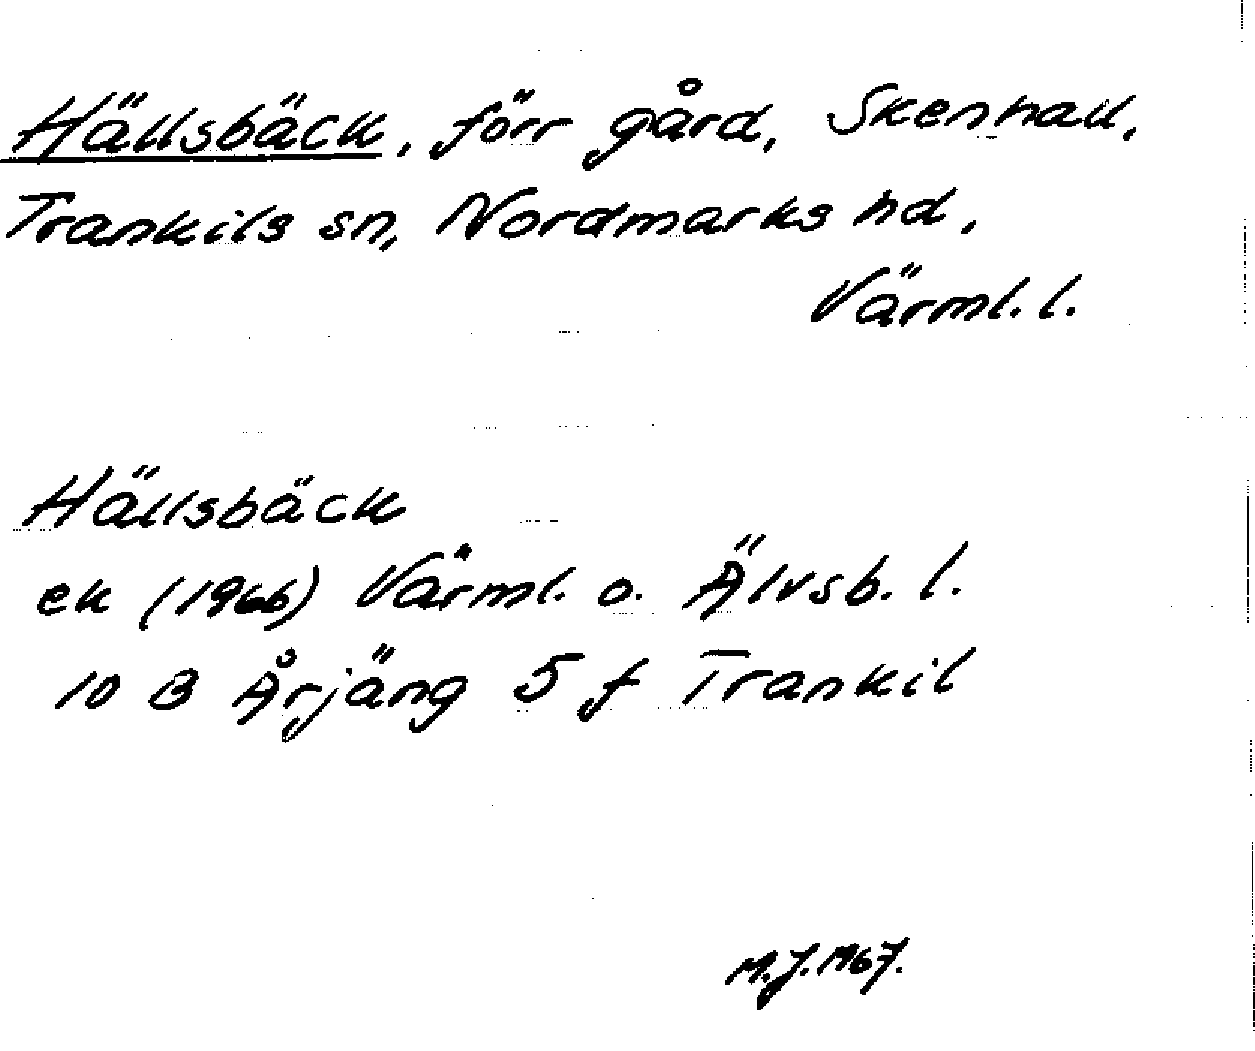 Hällsbäck, förr gård, Skenhall,
Trankils sn, Nordmarks hd,
Värml. l.
Hällsbäck
ek (1966) Värml. o. Älvsb. l.
10 B Årjäng 5 f Trankil
M.J. 1967.